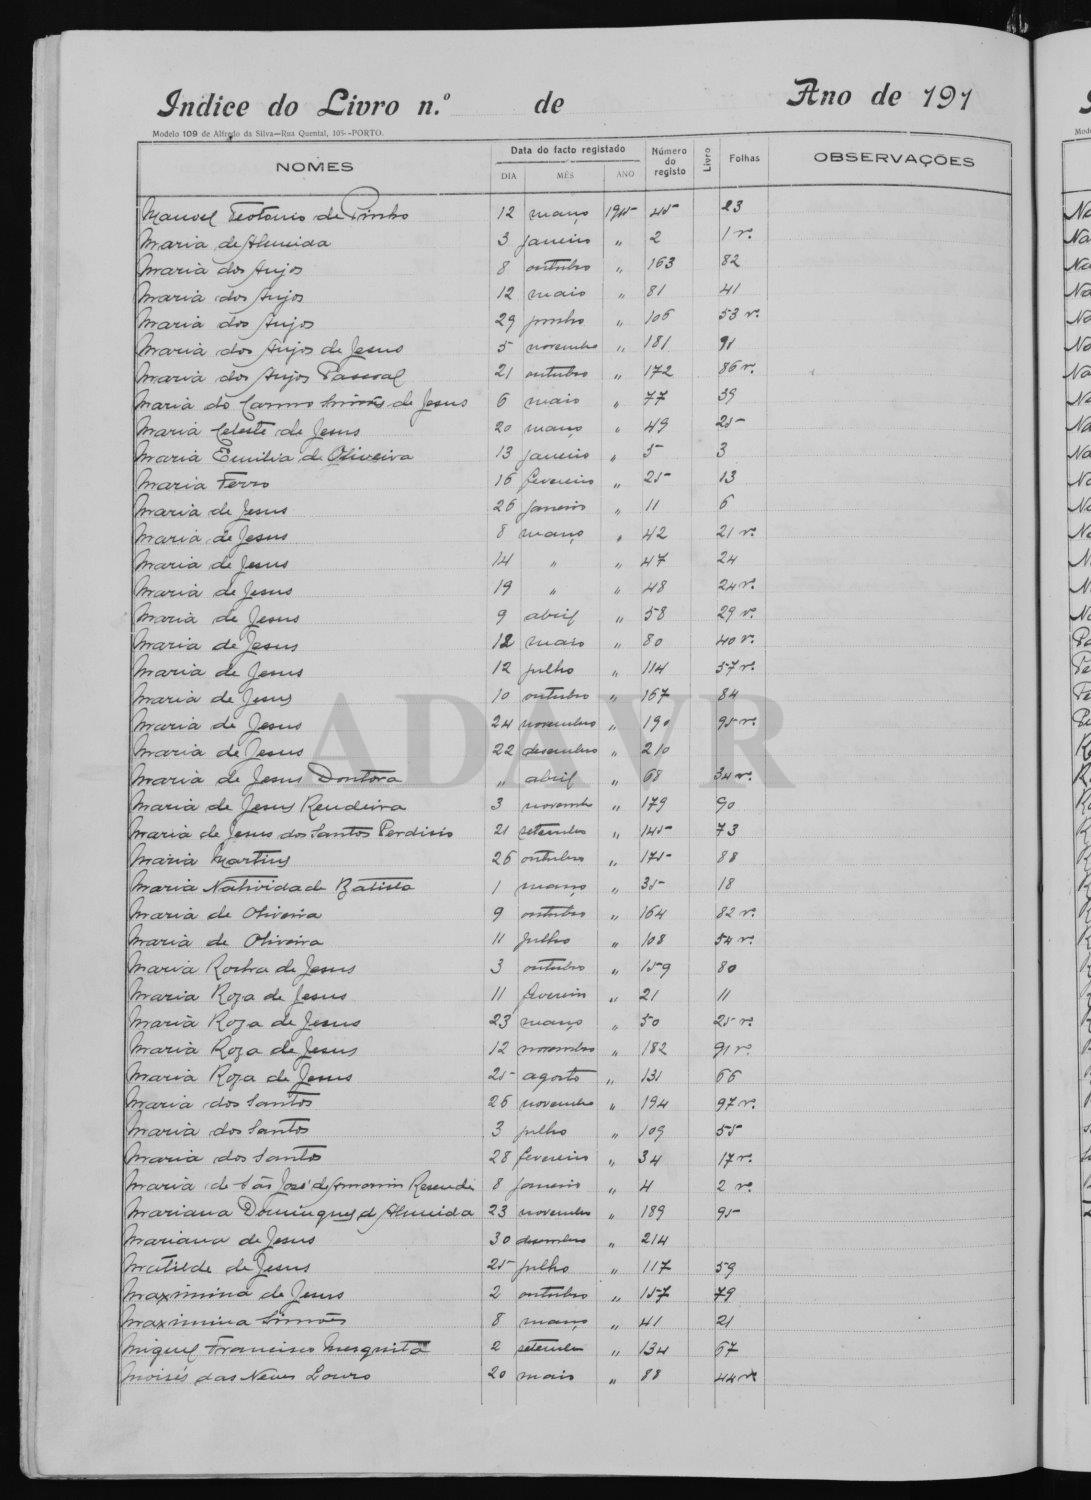 Indice do Livro n.º de Ano de 191
Modelo 109 de Alfredo da Silva—Rua Quental, 105--PORTO.
NOMES Data do facto registado Número do registo Livro Folhas OBSERVAÇÕES
DIA MÊS ANO
Manoel Teotonio de Pinho 12 março 1945 45 23
Maria de Almeida 3 janeiro " 2 1 v.
Maria dos Anjos 8 outubro " 163 82
Maria dos Anjos 12 maio " 81 41
Maria dos Anjos 29 junho " 106 53 v.
Maria dos Anjos de Jesus 5 novembro " 181 91
Maria dos Anjos Pascoal 21 outubro " 172 86 v.
Maria do Carmo Simões de Jesus 6 maio " 77 39
Maria Celeste de Jesus 20 março " 49 25
Maria Emilia de Oliveira 13 janeiro " 5 3
Maria Ferro 16 fevereiro " 25 13
Maria de Jesus 26 janeiro " 11 6
Maria de Jesus 8 março " 42 21 v.
Maria de Jesus 14 " " 47 24
Maria de Jesus 19 " " 48 24 v.
Maria de Jesus 9 abril " 58 29 v.
Maria de Jesus 12 maio " 80 40 v.
Maria de Jesus 12 julho " 114 57 v.
Maria de Jesus 10 outubro " 167 84
Maria de Jesus 24 novembro " 190 95 v.
Maria de Jesus 22 desembro " 210
Maria de Jesus Doutora " abril " 68 34 v.
Maria de Jesus Rendeira 3 novembro " 179 90
Maria de Jesus dos Santos Perdisio 21 setembro " 145 73
Maria Martins 26 outubro " 175 88
Maria Natividade Batista 1 março " 35 18
Maria de Oliveira 9 outubro " 164 82 v.
Maria de Oliveira 11 julho " 108 54 v.
Maria Rocha de Jesus 3 outubro " 159 80
Maria Roza de Jesus 11 fevereiro " 21 11
Maria Roza de Jesus 23 março " 50 25 v.
Maria Roza de Jesus 12 novembro " 182 91 v.
Maria Roza de Jesus 25 agosto " 131 66
Maria dos Santos 26 novembro " 194 97 v.
Maria dos Santos 3 julho " 109 55
Maria dos Santos 28 fevereiro " 34 17 v.
Maria de São José de Amorim Resende 8 janeiro " 4 2 v.
Mariana Domingues d'Almeida 23 novembro " 189 95
Mariana de Jesus 30 desembro " 214
Matilde de Jesus 25 julho " 117 59
Maximina de Jesus 2 outubro " 157 79
Maximina Simões 8 março " 41 21
Miguel Francisco Mesquita 2 setembro " 134 67
Moisés das Neves Louro 20 maio " 88 44 v.
ADAVR